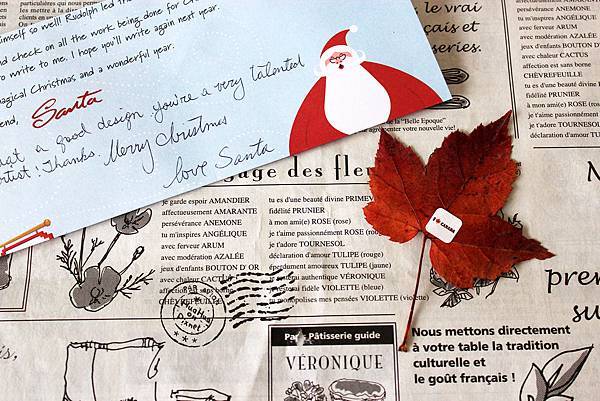 himself so well! Rudolph led the
and check on all the work being done for Chr
to write to me. I hope you'll write again next year.
magical Christmas and a wonderful year.
end,
Santa
a good design. you're a very talented
artist! Thanks. Merry Christmas
love Santa
persévérance ANÉMONE
tu m'inspires ANGÉLIQUE
avec ferveur ARUM
avec modération AZALÉE
jeux d'enfants BOUTON
avec chaleur CACTUS
affection est sans borne
CHÈVREFEUILLE
fidélité PRUNIER
à mon ami(e) ROSE
je t'adore TOURNESOL
déclaration d'amour TULIPE
series.
"Belle Epoque"
agrémenter votre nouvelle vie!
gage des fle
je garde espoir AMANDIER
affectueusement AMARANTE
persévérance ANEMONE
tu m'inspires ANGÉLIQUE
avec ferveur ARUM
avec modération AZALÉE
jeux d'enfants BOUTON D' OR
avec chaleur CACTUS
affection
CHÈVREFEUILLE
tu es d'une beauté divine PRIMEV
fidélité PRUNIER
à mon ami(e) ROSE (rose)
je t'aime passionnément ROSE (rou
je t'adore TOURNESOL
déclaration d'amour TULIPE (rouge)
éperdument amoureux TULIPE (jaune)
authentique VÉRONIQUE
fidèle VIOLETTE (bleue)
tu monopolises mes pensées VIOLETTE (violette)
I ♥ CANADA
Pixnet
Paris Pâtisserie guide
VÉRONIQUE
Nous mettons directement
à votre table la tradition
culturelle et
le goût français !
pren